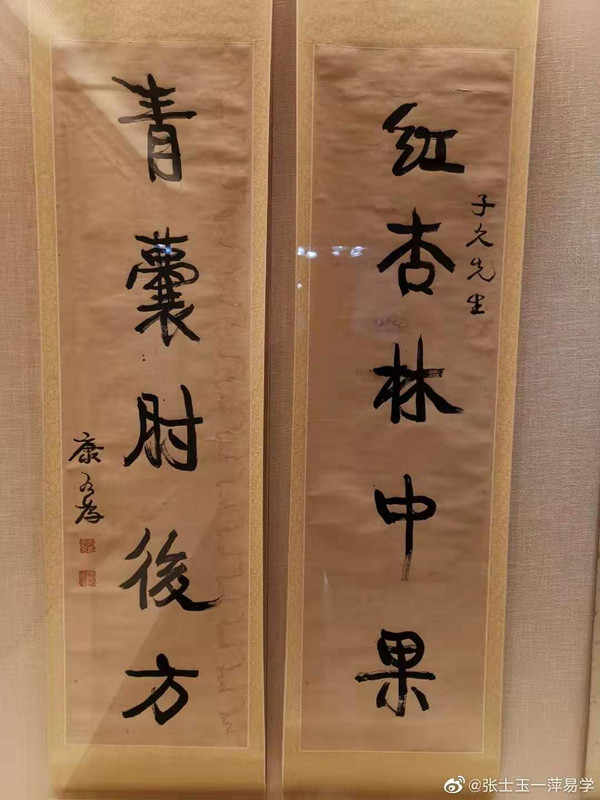 红杏林中果
子久先生
青囊肘後方
康有為
@张士玉一萍易学